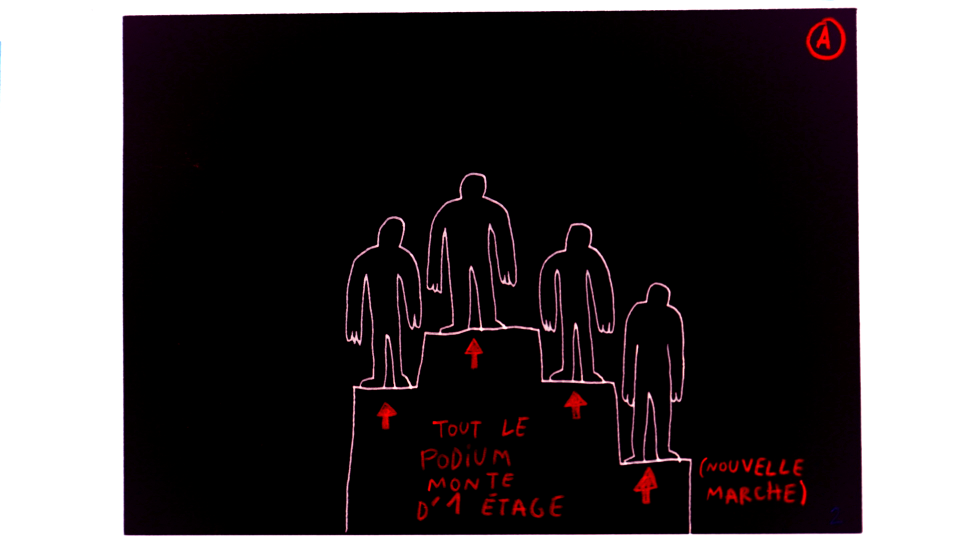 A
TOUT LE
PODIUM
MONTE
D'1 ÉTAGE
(NOUVELLE
MARCHE)